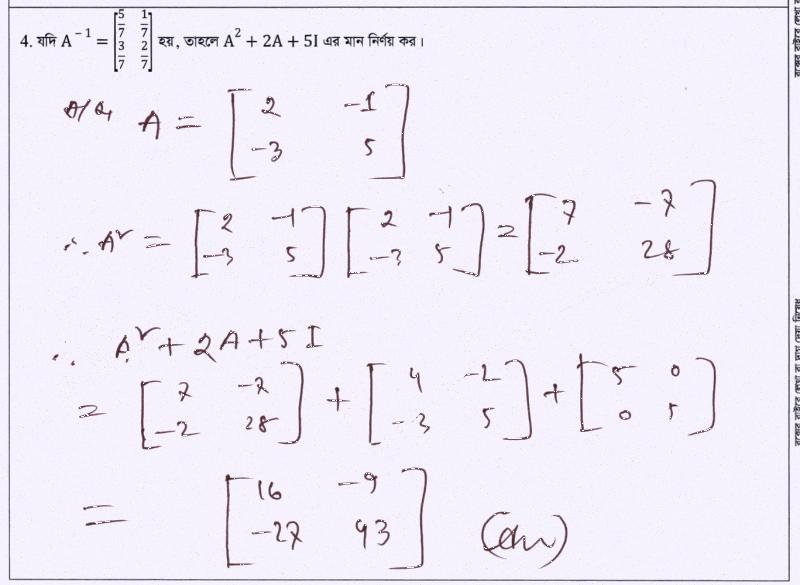 4. যদি A⁻¹ = [5/7 1/7; 3/7 2/7] হয়, তাহলে A² + 2A + 5I এর মান নির্ণয় কর।
A = [2 -1; -3 5]
∴ A² = [2 -1; -3 5] [2 -1; -3 5] = [7 -7; -2 28]
∴ A² + 2A + 5I
= [7 -7; -2 28] + [4 -2; -3 5] + [5 0; 0 5]
= [16 -9; -27 43]